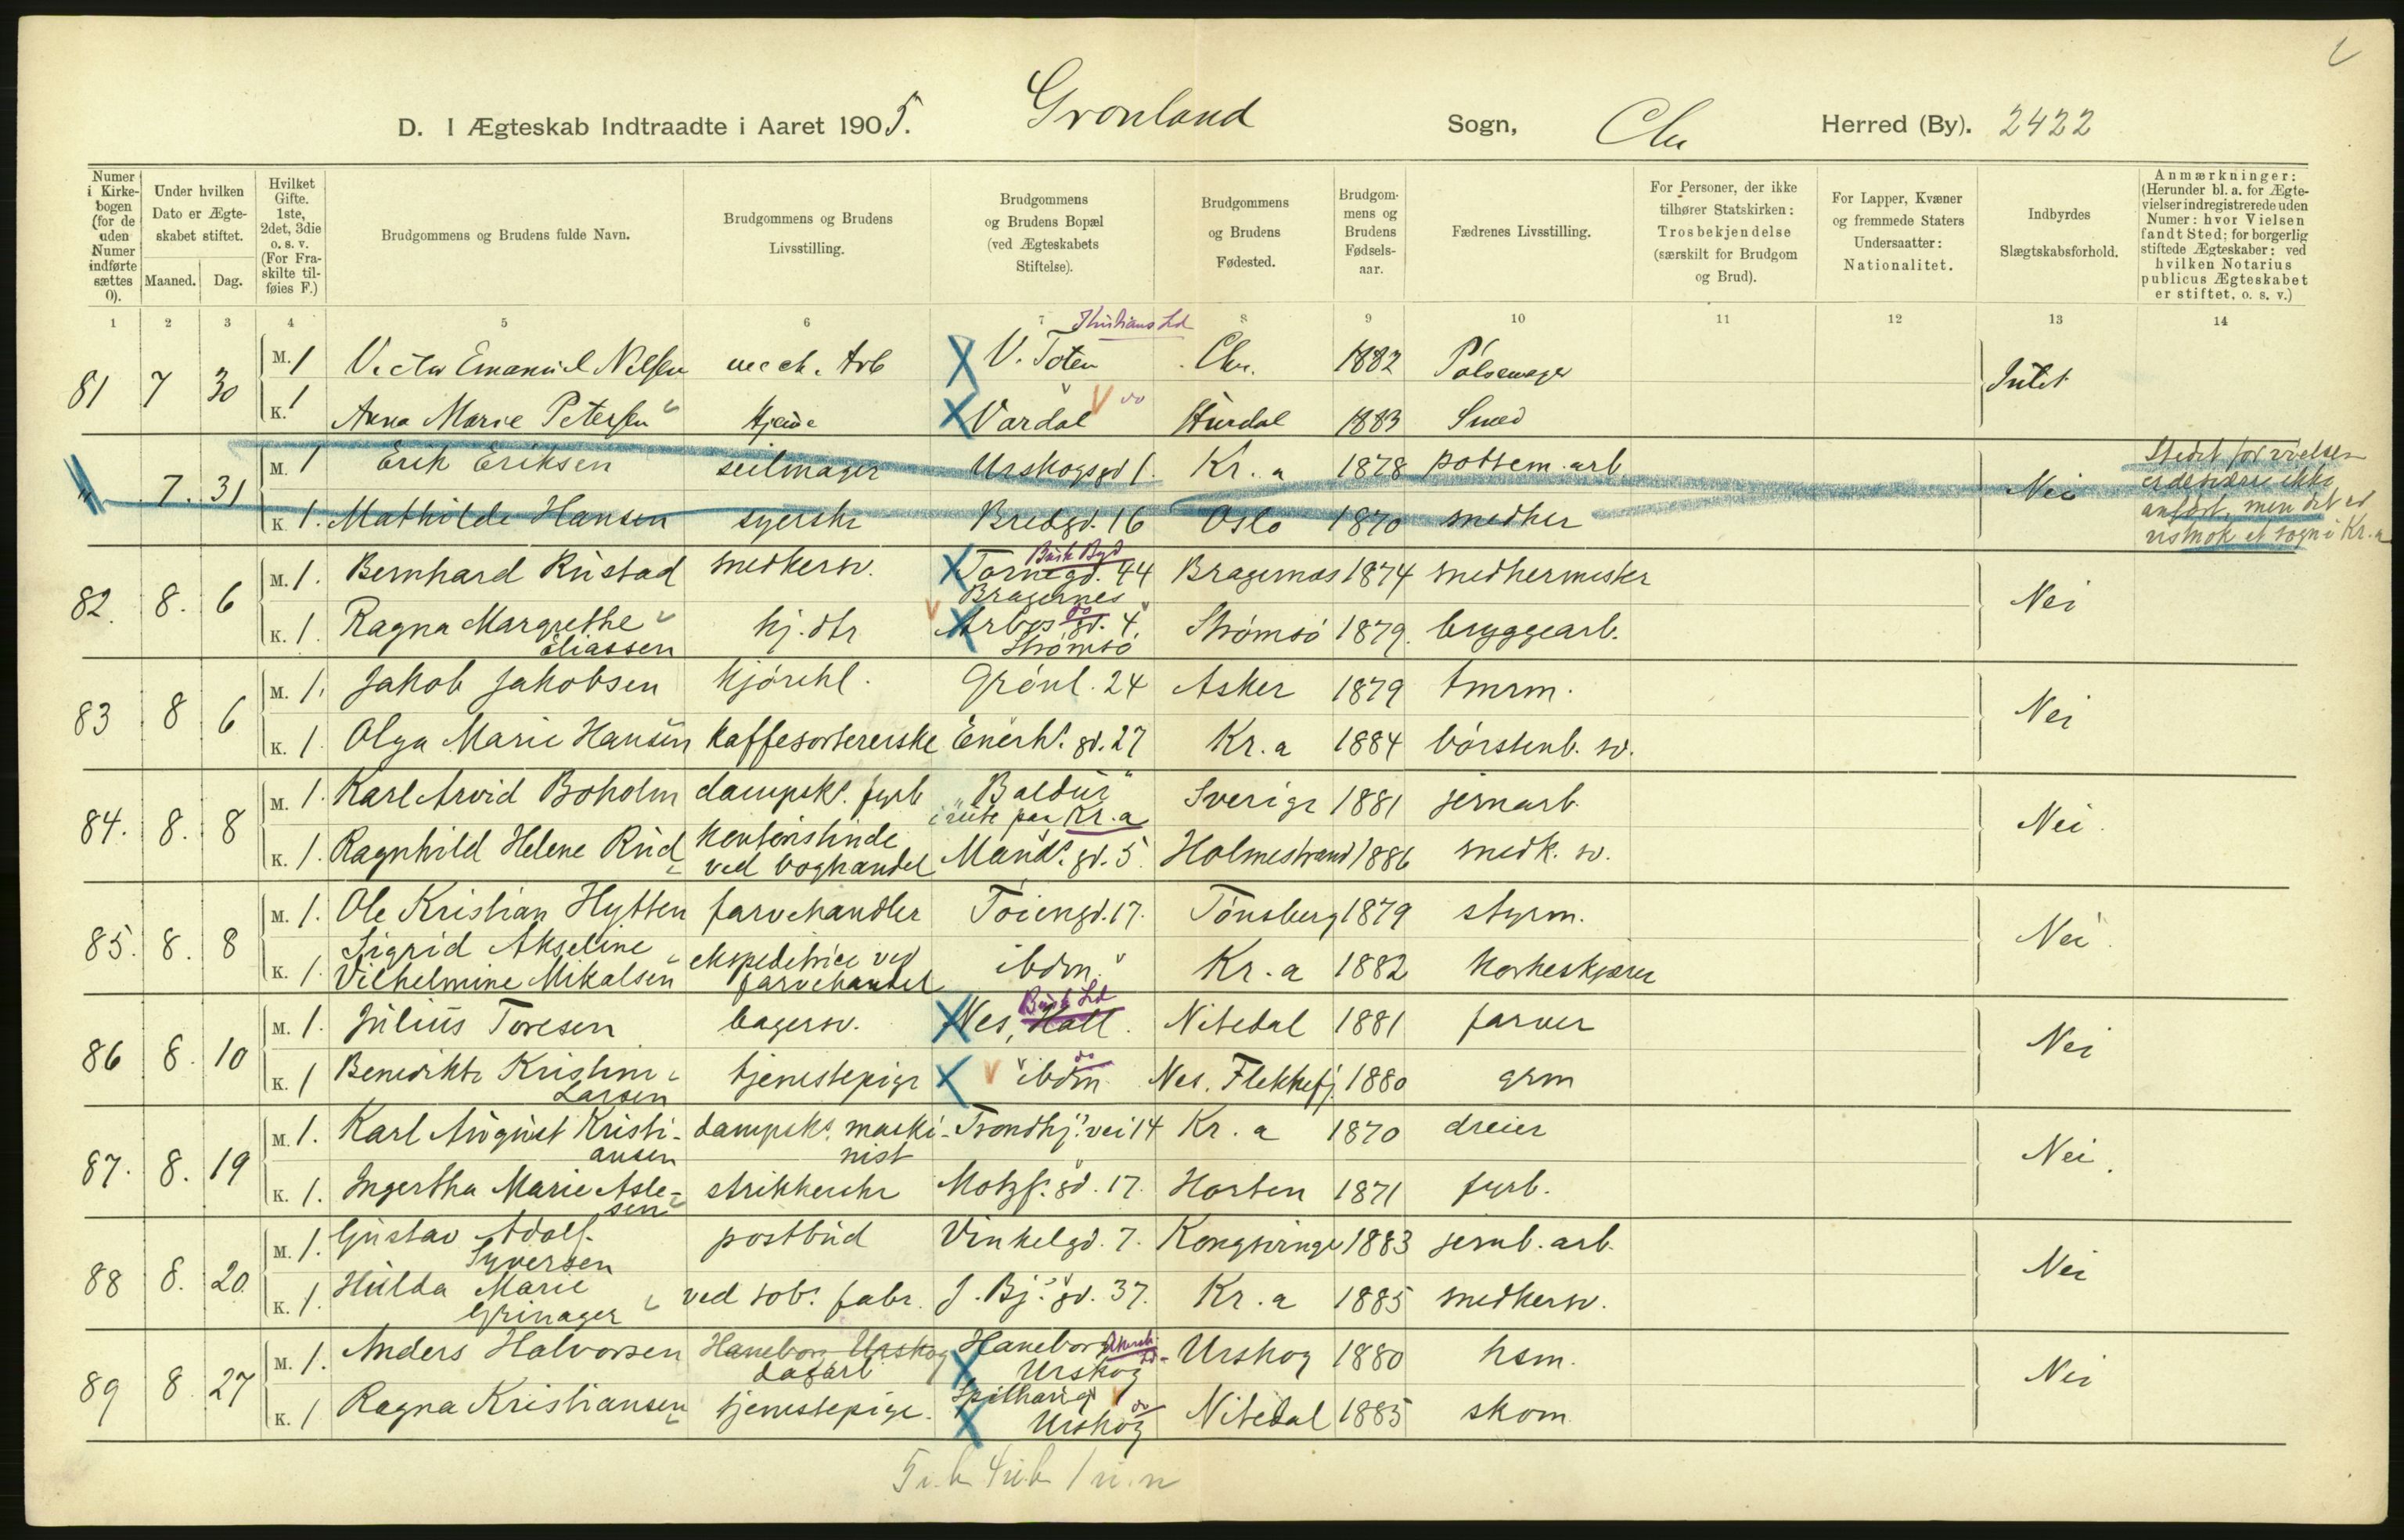 D. I Ægteskab Indtraadte i Aaret 1905. Grønland Sogn, Chr Herred (By). 2422
Numer i Kirkebogen (for de uden Numer indførte sættes 0).
Under hvilken Dato er Ægteskabet stiftet.
Maaned. Dag.
Hvilket Gifte. 1ste, 2det, 3die o. s. v. (For Fraskilte tilføies F.)
Brudgommens og Brudens fulde Navn.
Brudgommens og Brudens Livsstilling.
Brudgommens og Brudens Bopæl (ved Ægteskabets Stiftelse).
Brudgommens og Brudens Fødested.
Brudgommens og Brudens Fødselsaar.
Fædrenes Livsstilling.
For Personer, der ikke tilhører Statskirken: Trosbekjendelse (særskilt for Brudgom og Brud).
For Lapper, Kvæner og fremmede Staters Undersaatter: Nationalitet.
Indbyrdes Slægtskabsforhold.
Anmærkninger: (Herunder bl. a. for Ægtevielser indregistrerede uden Numer: hvor Vielsen fandt Sted; for borgerlig stiftede Ægteskaber: ved hvilken Notarius publicus Ægteskabet er stiftet, o. s. v.)
1 2 3 4 5 6 7 8 9 10 11 12 13 14
Kristians Ld
81 7 30 M. 1 Victor Emanuel Nilsen mech. Arb V. Toten Chr. 1882 Pølsemager Intet
K. 1 Anna Marie Petersen Hjemme Vardal do Hurdal 1883 Smed
" 7. 31 M. 1 Erik Eriksen seilmager Urskogsgd 1. Kr.a 1878 pottem. arb. Nei
K. 1. Mathilde Hansen syerske Bredgd. 16 Oslo 1870 snedker
Stedet for vielsen er desværre ikke anført, men det er vistnok et sogn i Kr.a
Busk Byd
82. 8. 6 M. 1. Bernhard Rustad snedkersv. Tornegd. 44 Bragernes Bragernæs 1874 snedkermester Nei
K. 1. Ragna Margrethe Eliassen hj. dtr Arbos gd. 4 do Strømsø Strømsø 1879. bryggearb.
83 8 6 M. 1. Jakob Jakobsen kjørekl. Grønl. 24 Asker 1879 tmrm. Nei
K. 1. Olga Marie Hansen kaffesortererske Enerh. gd. 27 Kr.a 1884 børstenb. sv.
84. 8. 8 M. 1. Karl Arvid Boholm dampsk. fyrb "Baldur" i rute paa Kr.a Sverige 1881 jernarb. Nei.
K. 1. Ragnhild Helene Rud kontoristinde ved boghandel Mand. gd. 5. Holmestrand 1886 snedk. sv.
85. 8. 8 M. 1. Ole Kristian Hytten farvehandler Tøiengd. 17. Tønsberg 1879 styrm. Nei.
K. 1. Sigrid Akseline Vilhelmine Mikalsen ekspeditrice ved farvehandel ibdm. Kr.a 1882 korkeskjærer
Busk Ld
86 8. 10 M. 1. Julius Toresen bagersv. Nes, Hall. Nitedal 1881 farver Nei
K. 1 Benedikte Kristine Larsen tjenestepige ibdm. do Nes. Flekkefj. 1880 grm
87. 8. 19 M. 1. Karl August Kristiansen dampsk. maskinist Trondhj. vei 14 Kr.a 1870 dreier Nei.
K. 1. Ingertha Marie Aslesen strikkerske Motzf. gd. 17. Horten 1871 fyrb.
88 8. 20. M. 1. Gustav Adolf Syversen postbud Vinkelgd. 7. Kongsvinger 1883 jernb. arb. Nei
K. 1. Hulda Marie Grinager ved tob. fabr. J. Bj. gd. 37. Kr.a 1885 snedkersv.
89 8 27 M. 1. Anders Halvorsen Haneborg Urskog dagarb Haneborg Akersh. Ld Urskog Urskog 1880 hsm. Nei
K. 1 Ragna Kristiansen tjenestepige. Spilhaug do Urskog Nitedal 1885 skom.